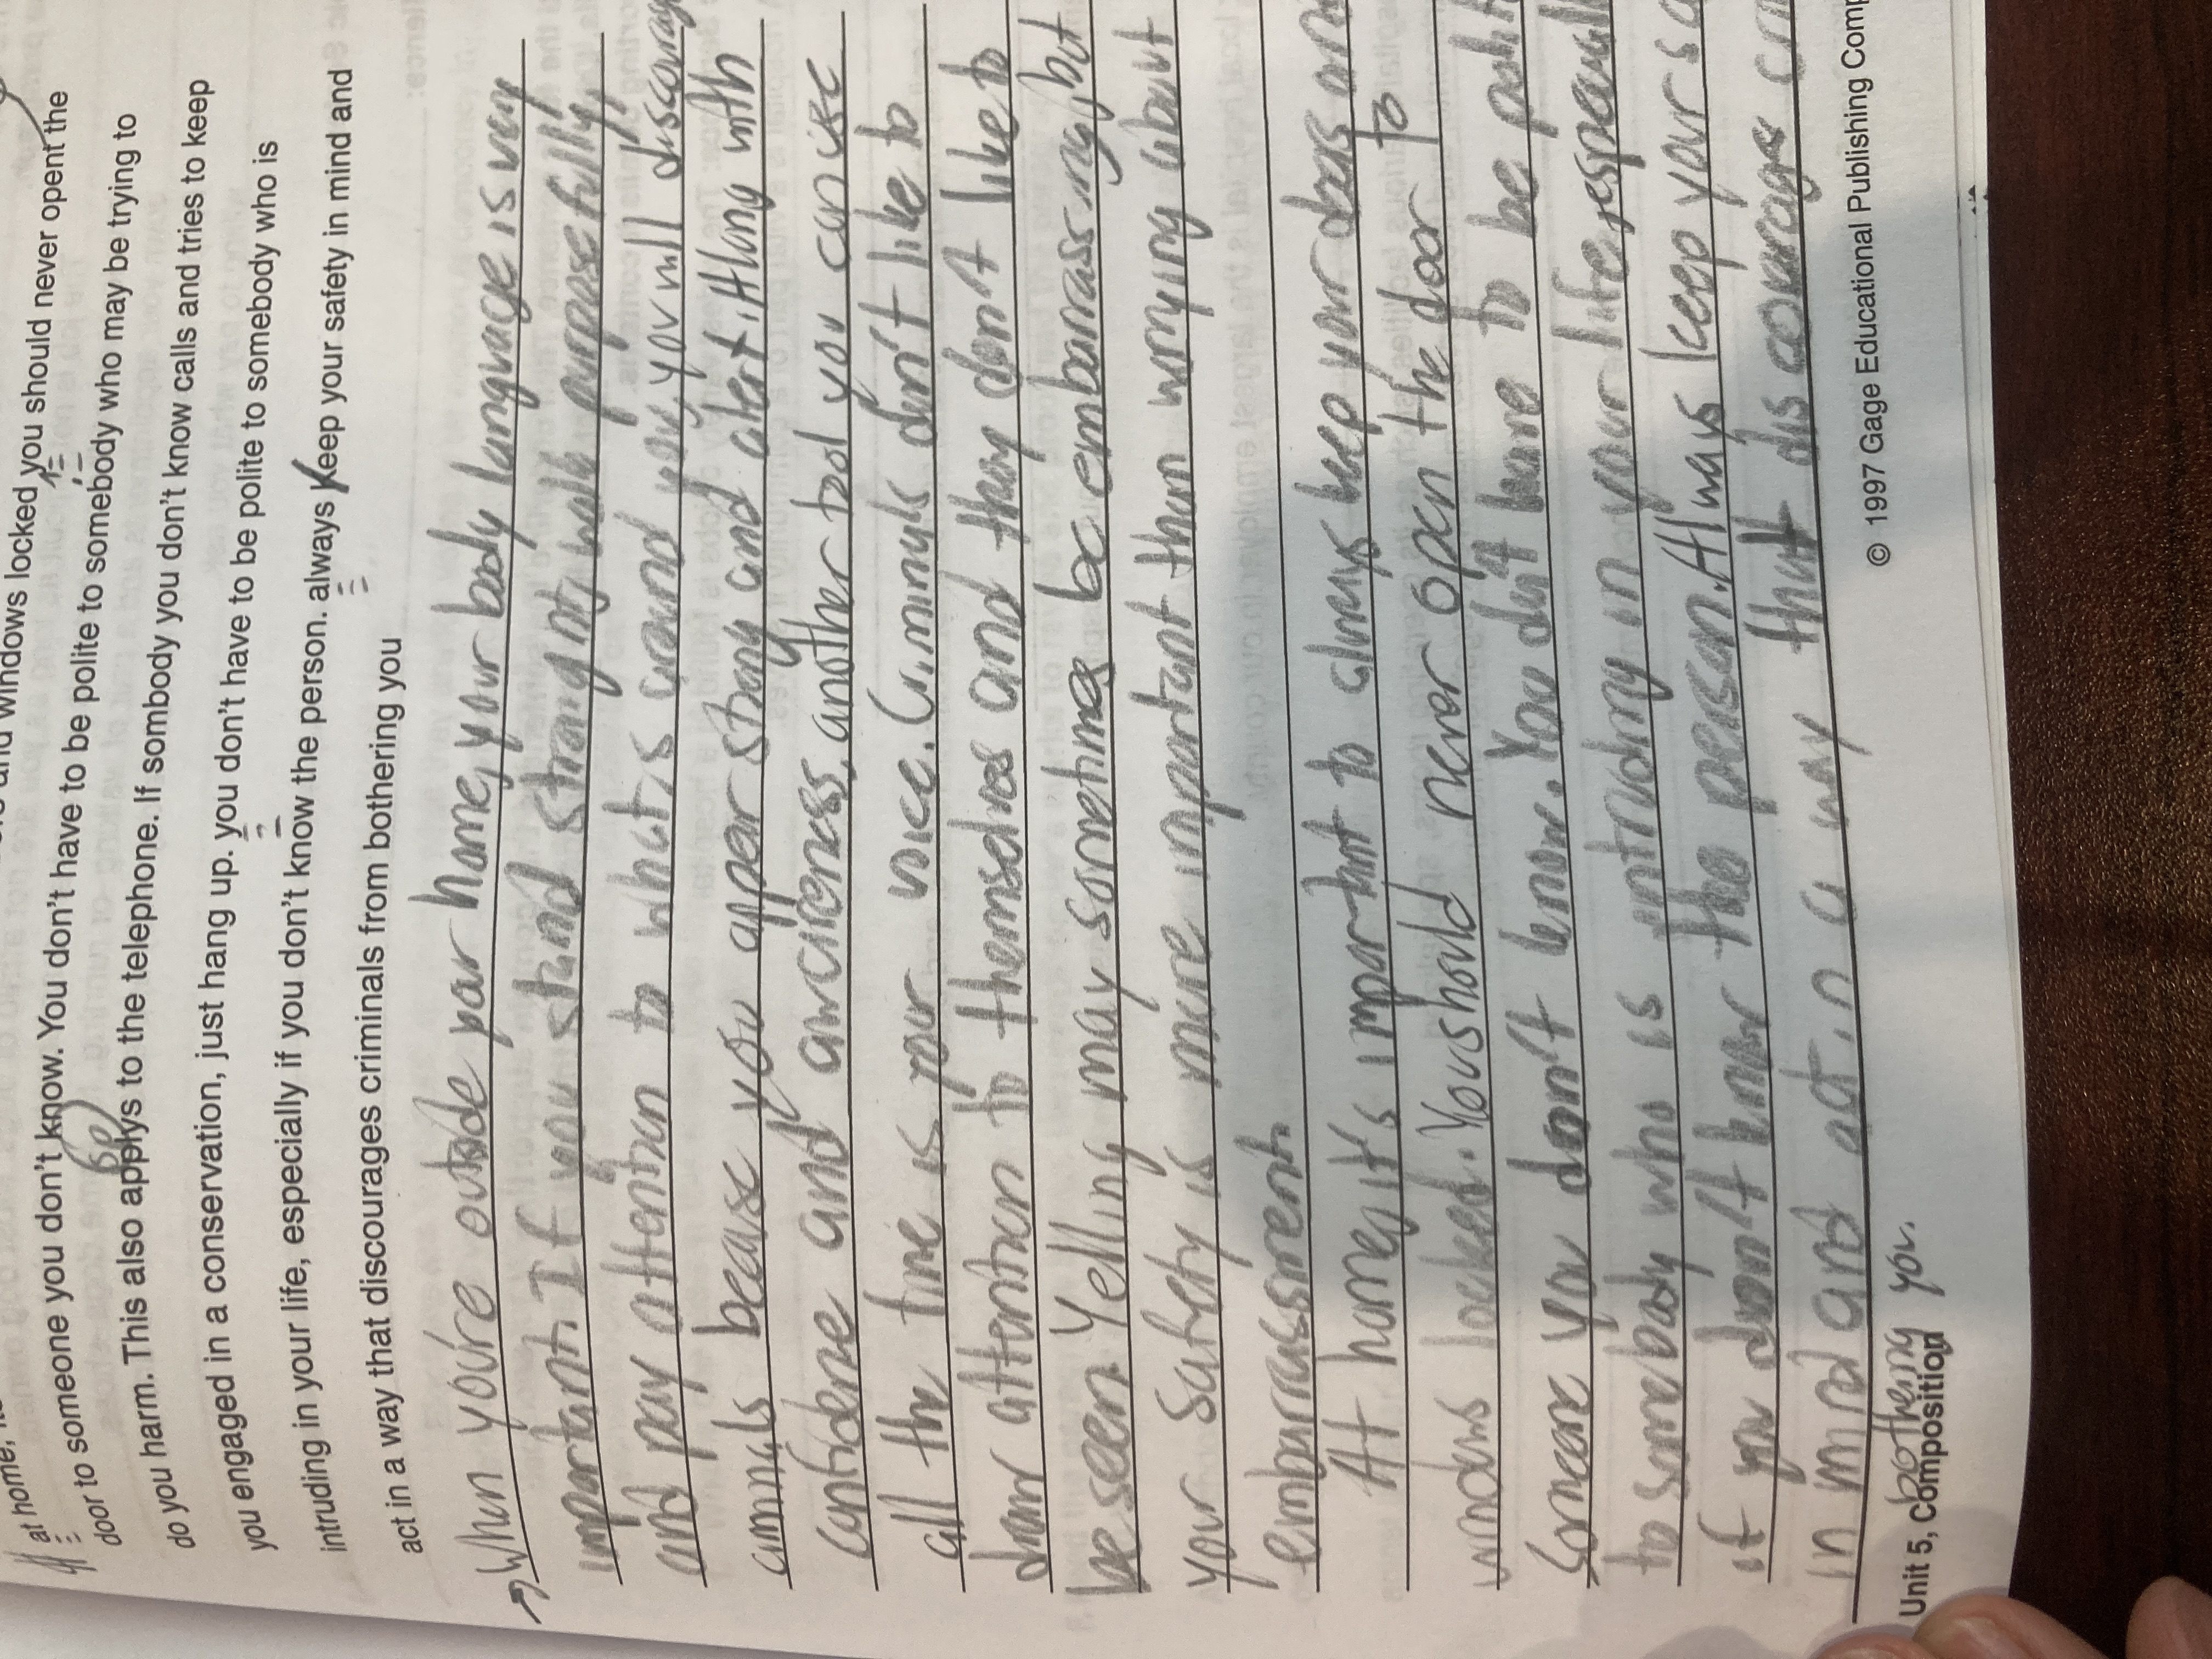 at home, and windows locked you should never opent the
door to someone you don't know. You don't have to be polite to somebody who may be trying to
do you harm. This also applys to the telephone. If sombody you don't know calls and tries to keep
sp
you engaged in a conservation, just hang up. you don't have to be polite to somebody who is
intruding in your life, especially if you don't know the person. always Keep your safety in mind and
act in a way that discourages criminals from bothering you
When you're outside your home, your body language is very
important. If you stand straight, walk purposefully,
and pay attention to what is around you, you will discourage
criminals because you apper strong and alert. Along with
confidence and awareness, another tool you can use
all the time is your voice. Criminals don't like to
draw attention to themselves and they don't like to
be seen. Yelling may sometimes be embarrassing, but
your safety is more important than worrying about
embarrassment.
At home, it's important to always keep your doors and
windows locked. You should never open the door to
someone you don't know. You don't have to be polite
to somebody who is intruding in your life, especially
if you don't know the person. Always keep your sa
in mind and act in a way that discourages crim
bothering you.
Unit 5, Composition
© 1997 Gage Educational Publishing Comp